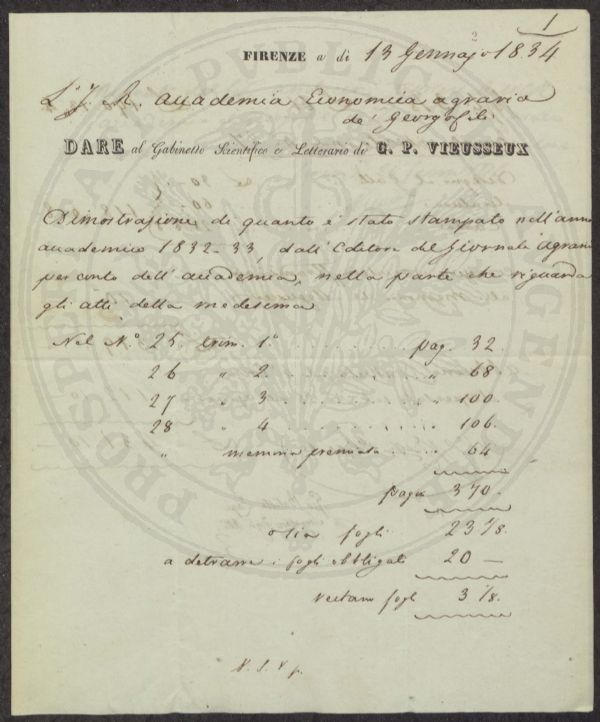 1
2
FIRENZE a dì 13 Gennajo 1834
L'I. R. Accademia Economica agraria
de' Georgofili
DARE al Gabinetto Scientifico e Letterario di G. P. VIEUSSEUX
Dimostrazione di quanto è stato stampato nell'anno
accademico 1832-33, dall'Editore del Giornale agrario
per conto dell'accademia, nella parte che riguarda
gli atti della medesima
Nel N.° 25 trim. 1° . . . . . . . . . pag. 32.
26 " 2. . . . . . . . . " 68.
27 " 3. . . . . . . . . " 100.
28 " 4. . . . . . . . . " 106.
" memoria premiata . . . . " 64
pagine 370.
ossia fogli 23 1/8.
a detrarre i fogli obbligati 20 —
restano fogli 3 1/8.
V. S. V. p.
PROSPERITATI PVBLICAE AVGENDAE